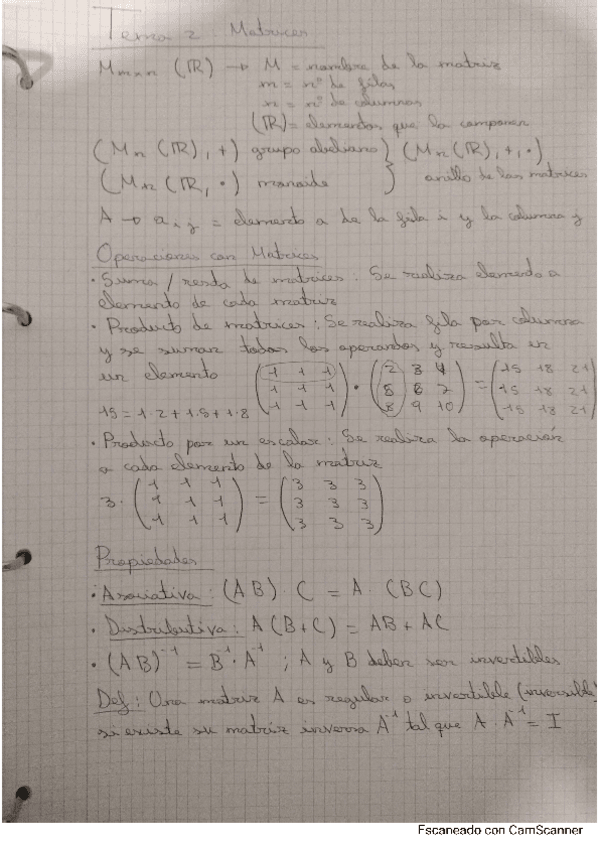 Tema 2: Matrices
Mmxn (ℝ) → M = nombre de la matriz
m = nº de filas
n = nº de columnas
(ℝ) = elementos que la componen
(Mn (ℝ), +) grupo abeliano } (Mn (ℝ), +, ·)
(Mn (ℝ, ·) monoide } anillo de las matrices
A → ai,j = elemento a de la fila i y la columna j
Operaciones con Matrices
· Suma / resta de matrices: Se realiza elemento a
elemento de cada matriz
· Producto de matrices: Se realiza fila por columna
y se suman todos los operandos y resulta en
un elemento (1 1 1) · (2 3 4) = (15 18 21)
(1 1 1) (5 6 7) (15 18 21)
15 = 1·2 + 1·5 + 1·8 (1 1 1) (8 9 10) (15 18 21)
· Producto por un escalar: Se realiza la operación
a cada elemento de la matriz
(1 1 1) (3 3 3)
3· (1 1 1) = (3 3 3)
(1 1 1) (3 3 3)
Propiedades
· Asociativa: (AB) · C = A · (BC)
· Distributiva: A(B+C) = AB + AC
· (AB)⁻¹ = B⁻¹ · A⁻¹ ; A y B deben ser invertibles
Def: Una matriz A es regular o invertible (inversible)
si existe su matriz inversa A⁻¹ tal que A · A⁻¹ = I
Escaneado con CamScanner